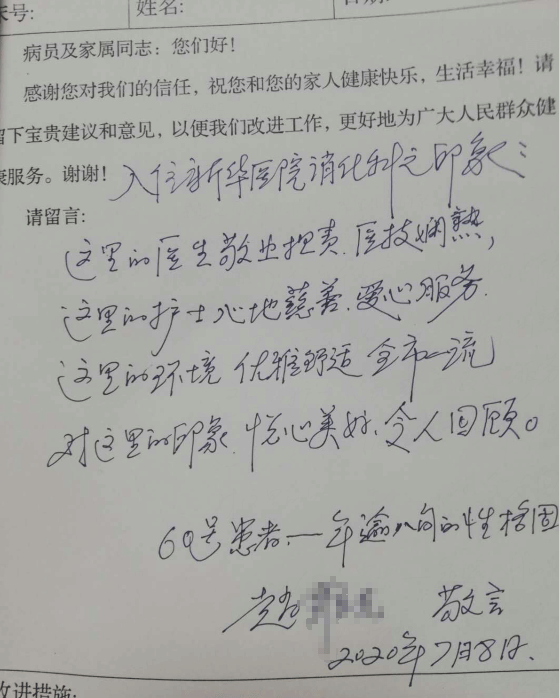 床号: 姓名: 日期:
病员及家属同志：您们好！
感谢您对我们的信任，祝您和您的家人健康快乐，生活幸福！请
留下宝贵建议和意见，以便我们改进工作，更好地为广大人民群众健
康服务。谢谢！
入住新华医院消化科之印象：
请留言：
这里的医生敬业担责、医技娴熟，
这里的护士心地慈善、爱心服务.
这里的环境 优雅舒适 全市一流
对这里的印象、悦心美好、令人回顾。
60号患者、一年逾八旬的性格固
敬言
2020年7月8日.
改进措施: